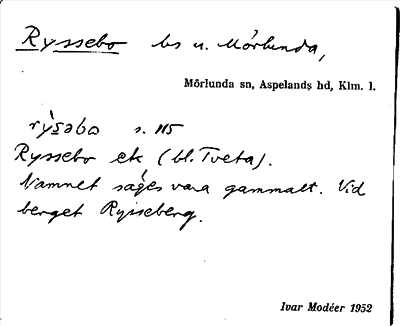 Ryssebo bs u. Mörlunda,
Mörlunda sn, Aspelands hd, Klm. l.
rỳsəbo s. 115
Ryssebo ek (bl. Tveta).
Namnet säges vara gammalt. Vid
berget Rysseberg.
Ivar Modéer 1952